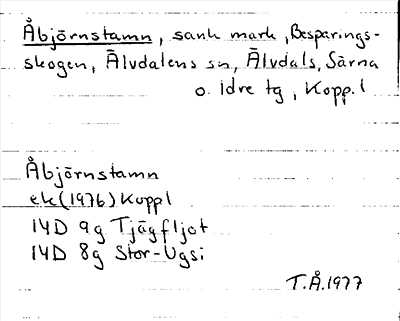 Åbjörnstamn, sank mark, Besparings-
skogen, Älvdalens sn, Älvdals, Särna
o. Idre tg, Kopp. l
Åbjörnstamn
ek (1976) Koppl
14D 9g Tjägfljot
14D 8g Stor-Ugsi
T.Å. 1977